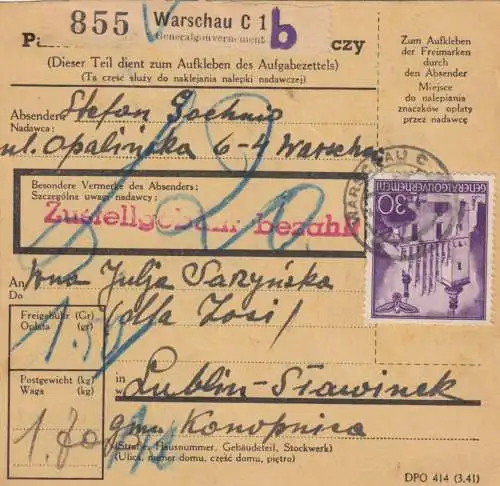 855 Warschau C 1 b
Generalgouvernement
czy
(Dieser Teil dient zum Aufkleben des Aufgabezettels)
(Ta część służy do naklejania nalepki nadawczej)
Zum Aufkleben
der Freimarken
durch
den Absender
Miejsce
do nalepiania
znaczków opłaty
przez nadawcę
Absender
Nadawca:
Stefan
ul. Opalińska 6-4 Warschau
WARSCHAU C
Besondere Vermerke des Absenders:
Szczególne uwagi nadawcy:
Zustellgebühr bezahlt
30
GENERALGOUVERNEMENT
An
Do
Julja Saryńska
(dla Zosi)
Freigebühr (Gr)
Opłata (gr)
Postgewicht (kg)
Waga (kg)
1.70
in
w
Lublin-Sławinek
gm. Konopnica
(Straße, Hausnummer, Gebäudeteil, Stockwerk)
(Ulica, numer domu, część domu, piętro)
DPO 414 (3.41)